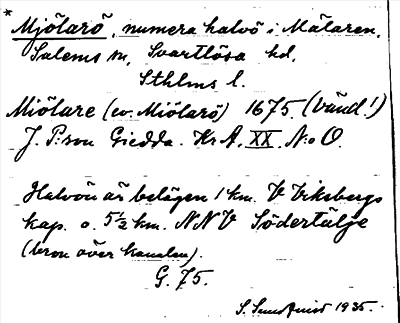 * Mjölarö, numera halvö i Mälaren,
Salems sn, Svartlösa hd,
Sthlms l.
Miölare (ev. Miölarö) 1675 (vänd!)
J. P:son Giedda. Kr A. XX. N:o O.
Halvön är belägen 1 km. V Viksbergs
kap. o. 5½ km. NNV Södertälje
(bron över kanalen).
G. 75.
S. Sundquist 1935.